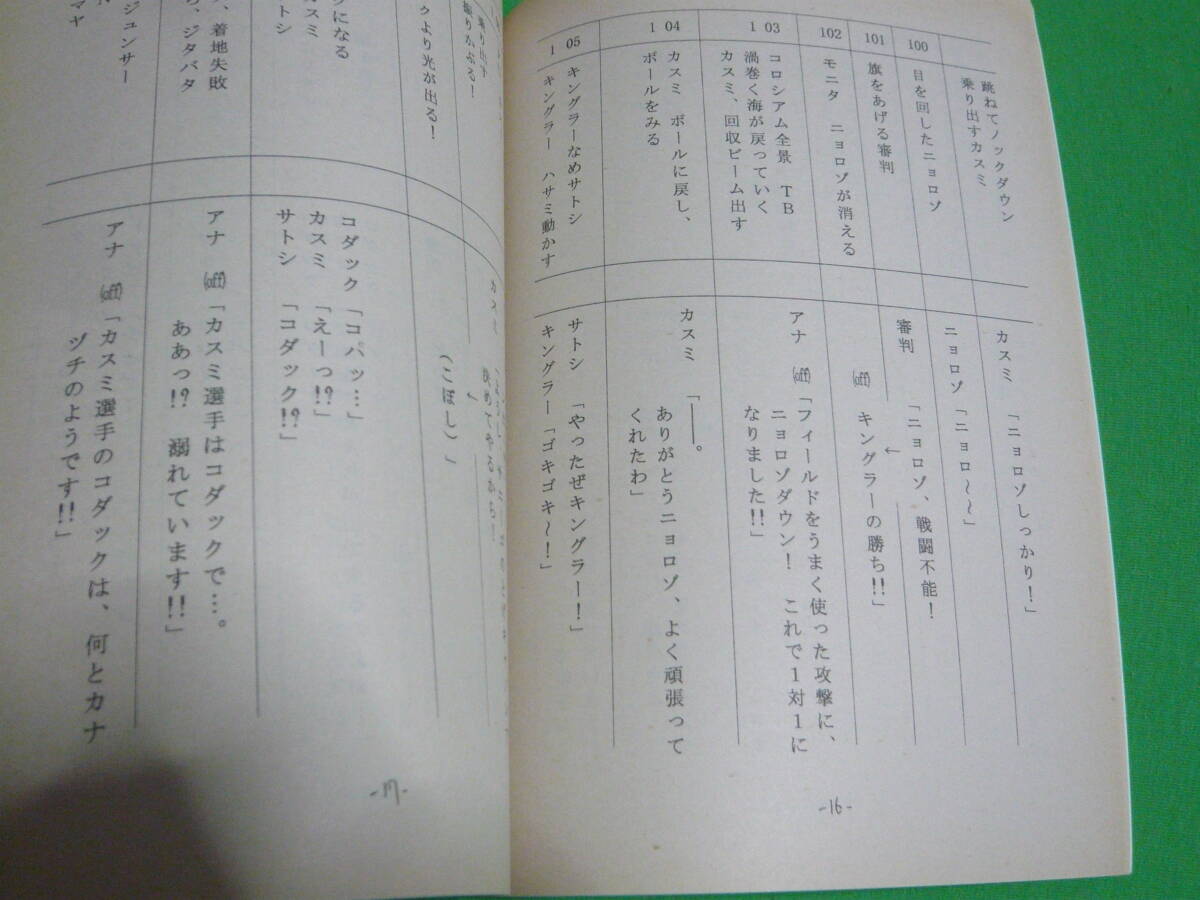 跳ねてノックダウン
乗り出すカスミ
カスミ 「ニョロゾしっかり!」
100
目を回したニョロゾ
ニョロゾ「ニョロ～～」
101
旗をあげる審判
審判 「ニョロゾ、戦闘不能!
←
102
モニタ ニョロゾが消える
(off) キングラーの勝ち!!」
103
コロシアム全景 TB
渦巻く海が戻っていく
カスミ、回収ビーム出す
アナ (off)「フィールドをうまく使った攻撃に、
ニョロゾダウン! これで1対1に
なりました!!」
104
カスミ ボールに戻し、
ボールをみる
カスミ 「――。
ありがとうニョロゾ、よく頑張って
くれたわ」
105
キングラーなめサトシ
キングラー ハサミ動かす
サトシ 「やったぜキングラー!」
キングラー「ゴキゴキ～!」
-16-
乗り出す
振りかぶる!
カスミ
決めてやるから!
クより光が出る!
(こぼし)」
クになる
カスミ
トシ
コダック「コパッ…」
カスミ 「えーっ!?」
サトシ 「コダック!?」
、着地失敗
ら、ジタバタ
アナ (off)「カスミ選手はコダックで…。
ああっ!? 溺れています!!」
ジュンサー
マヤ
アナ (off)「カスミ選手のコダックは、何とカナ
ヅチのようです!!」
-17-